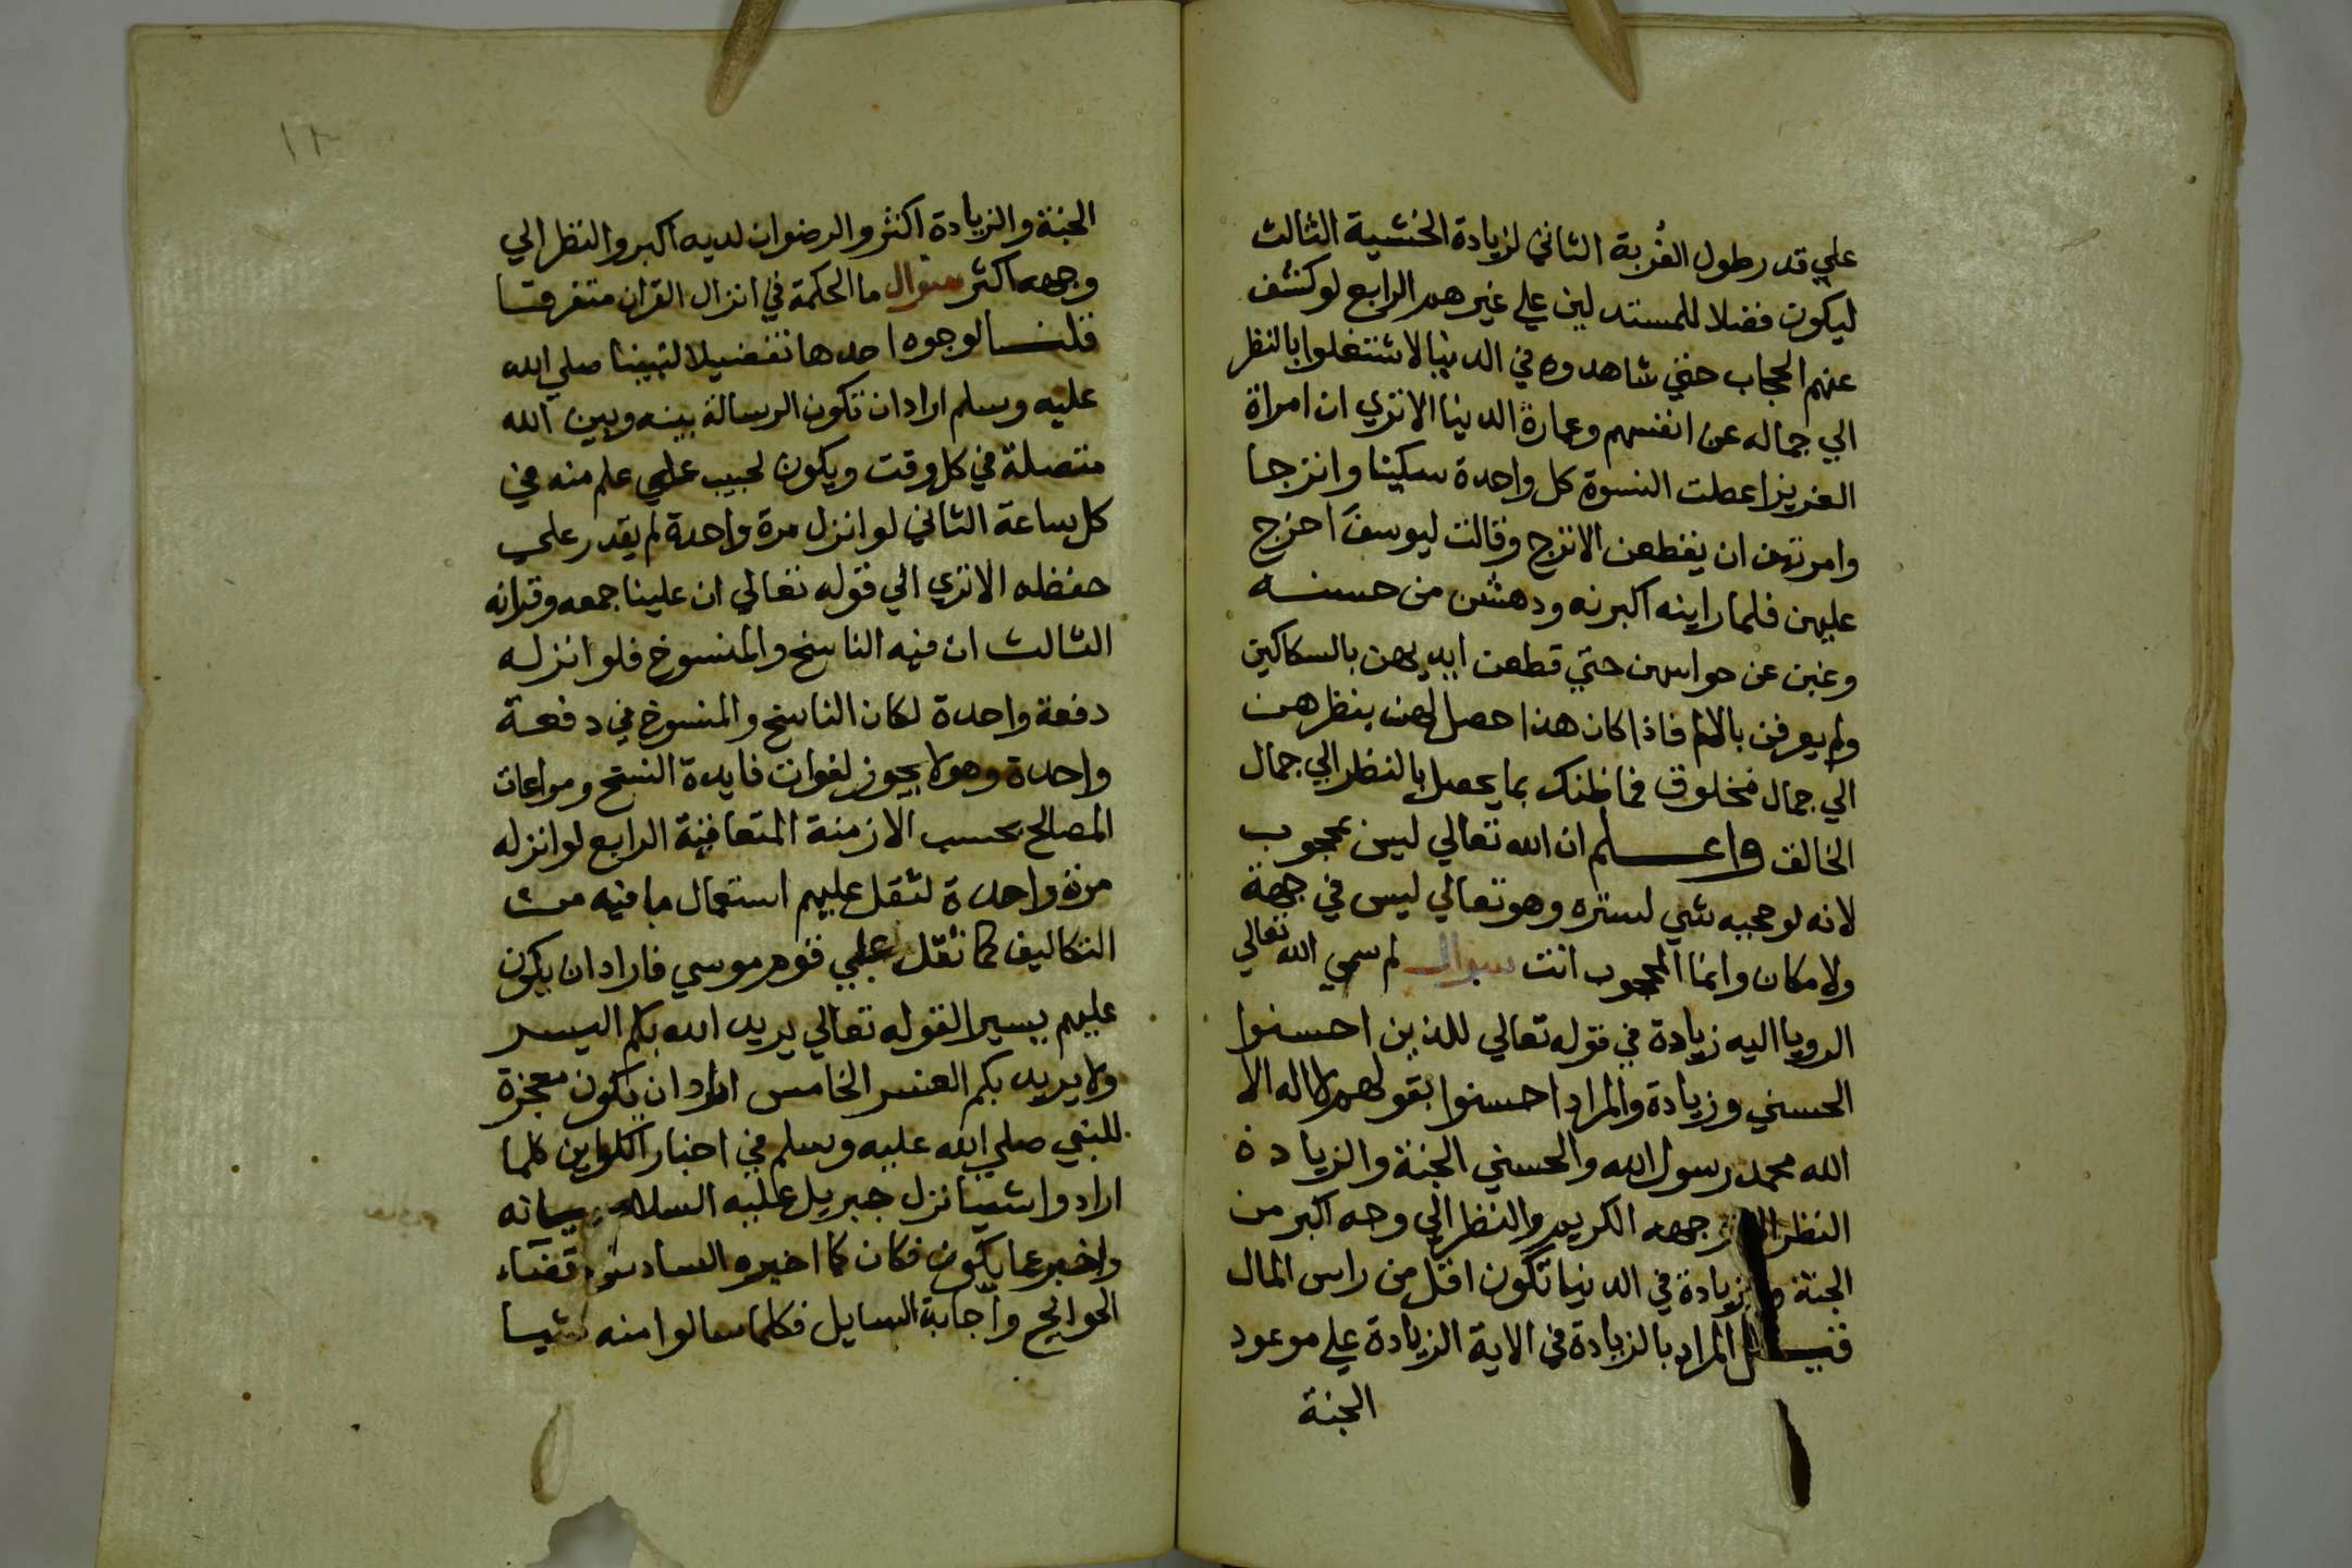 علي قدر طول الغُربة الثاني لزيادة الخشية الثالث
ليكون فضلا للمستدلين علي غيرهم الرابع لو كشف
عنهم الحجاب حتي شاهدوه في الدنيا لاشتغلوا بالنظر
الي جماله عن انفسهم وعمارة الدنيا الا تري ان امراة
العزيز اعطت النسوة كل واحدة سكينا واترجا
وامرتهن ان يقطعن الاترج وقالت ليوسف اخرج
عليهن فلما راينه اكبرنه ودهشن من حسنه
وغبن عن حواسهن حتي قطعن ايديهن بالسكاكين
ولم يعرفن بالالم فاذا كان هذا حصل لهن بنظرهن
الي جمال مخلوق فما ظنك بما يحصل بالنظر الي جمال
الخالق واعلم ان الله تعالي ليس بمحجوب
لانه لو حجبه شي لستره وهو تعالي ليس في جهة
ولا مكان وانما المحجوب انت سوال لم سمي الله تعالي
الرويا اليه زيادة في قوله تعالي للذين احسنوا
الحسني وزيادة والمراد احسنوا بقولهم لا اله الا
الله محمد رسول الله والحسني الجنة والزيادة
النظر الي وجهه الكريم والنظر الي وجه اكبر من
الجنة والزيادة في الدنيا تكون اقل من راس المال
قيل المراد بالزيادة في الاية الزيادة علي موعود
الجنة
١٢
الجنة والزيادة اكثر والرضوان لديه اكبر والنظر الي
وجهه اكثر سوال ما الحكمة في انزال القران متفرقا
قلنا لوجوه احدها تفضيلا لنبينا صلي الله
عليه وسلم اراد ان تكون الرسالة بينه وبين الله
متصلة في كل وقت ويكون لحبيب علي علم منه في
كل ساعة الثاني لو انزل مرة واحدة لم يقدر علي
حفظه الا تري الي قوله تعالي ان علينا جمعه وقرانه
الثالث ان فيه الناسخ والمنسوخ فلو انزله
دفعة واحدة لكان الناسخ والمنسوخ في دفعة
واحدة وهو لا يجوز لفوات فايدة النسخ ومراعات
المصالح بحسب الازمنة المتعاقبة الرابع لو انزله
مرة واحدة لثقل عليهم استعمال ما فيه من
التكاليف كما ثقل علي قوم موسي فاراد ان يكون
عليهم يسيرا لقوله تعالي يريد الله بكم اليسر
ولا يريد بكم العسر الخامس اراد ان يكون معجزة
للنبي صلي الله عليه وسلم في اخبار الكواين كلما
ارادوا شيا نزل جبريل عليه السلام ببيانه
واخبر عما يكون فكان كما اخبره السادس قضاء
الحوايج واجابة السايل فكلما سالوا منه شيا